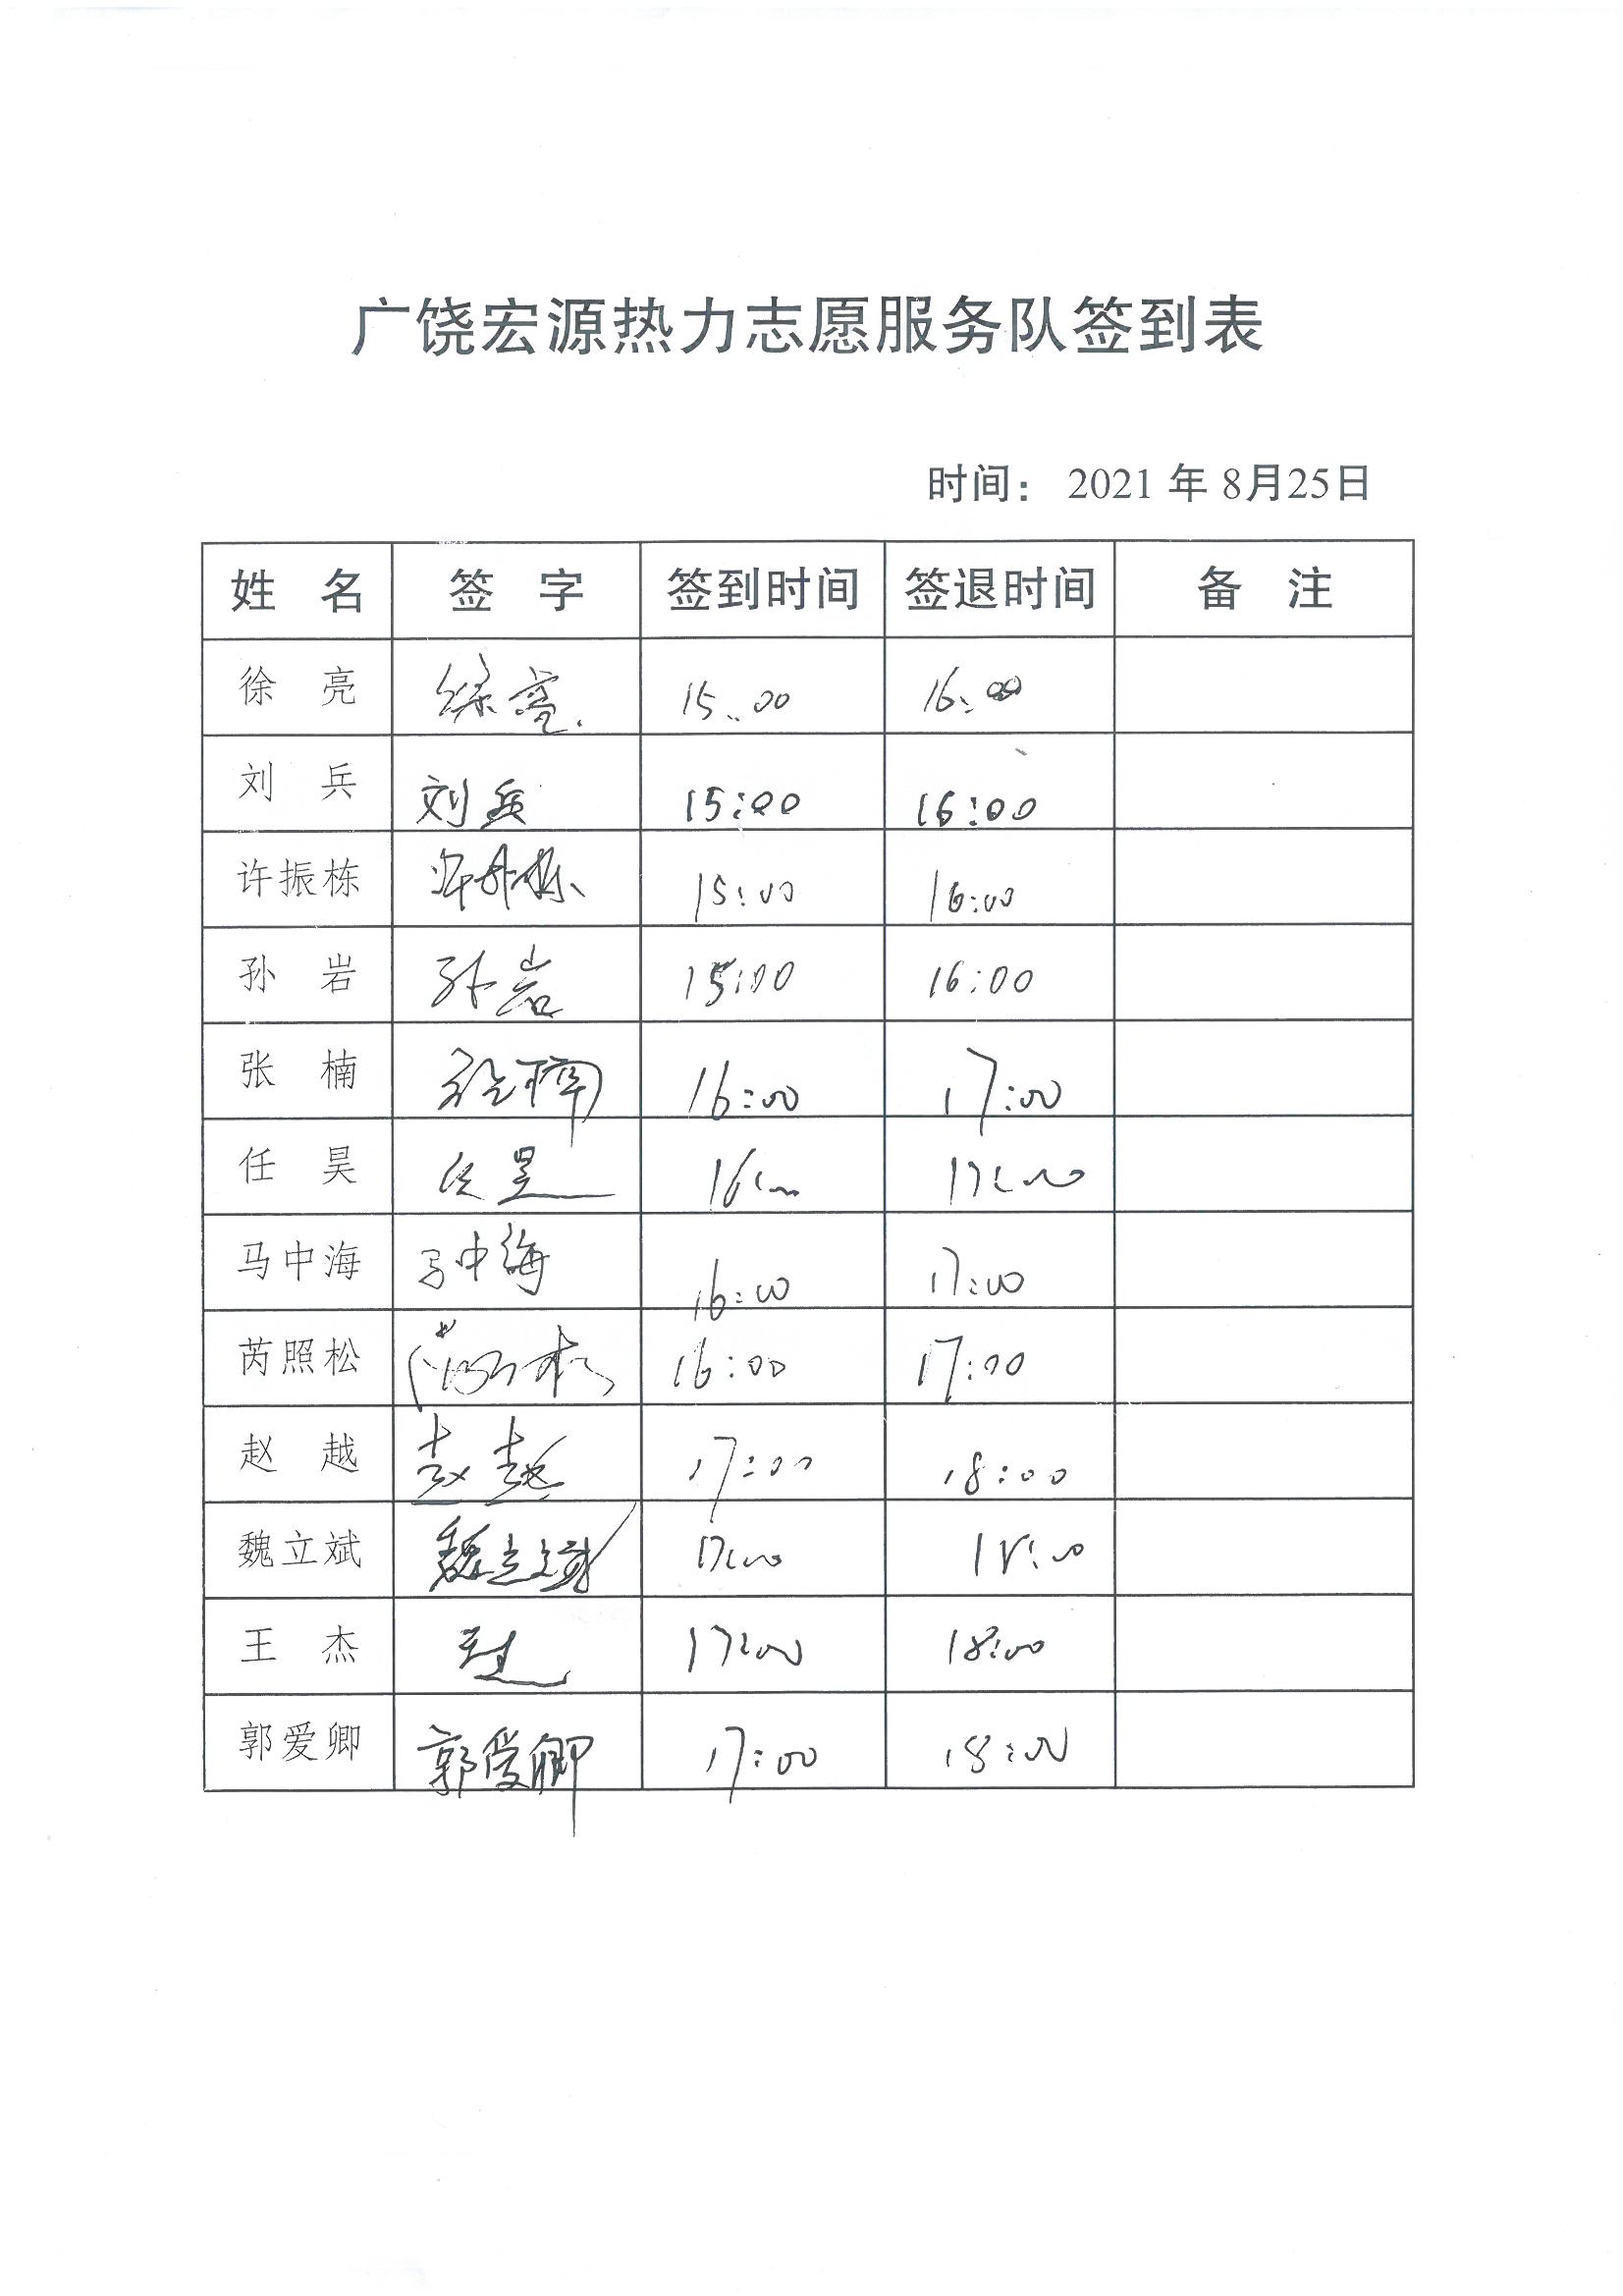 广饶宏源热力志愿服务队签到表
时间： 2021 年 8月25日
姓 名 签 字 签到时间 签退时间 备 注
徐 亮 徐亮 15:00 16:00
刘 兵 刘兵 15:00 16:00
许振栋 许振栋 15:00 16:00
孙 岩 孙岩 15:00 16:00
张 楠 张楠 16:00 17:00
任 昊 任昊 16:00 17:00
马中海 马中海 16:00 17:00
芮照松 芮照松 16:00 17:00
赵 越 赵越 17:00 18:00
魏立斌 魏立斌 17:00 18:00
王 杰 王杰 17:00 18:00
郭爱卿 郭爱卿 17:00 18:00